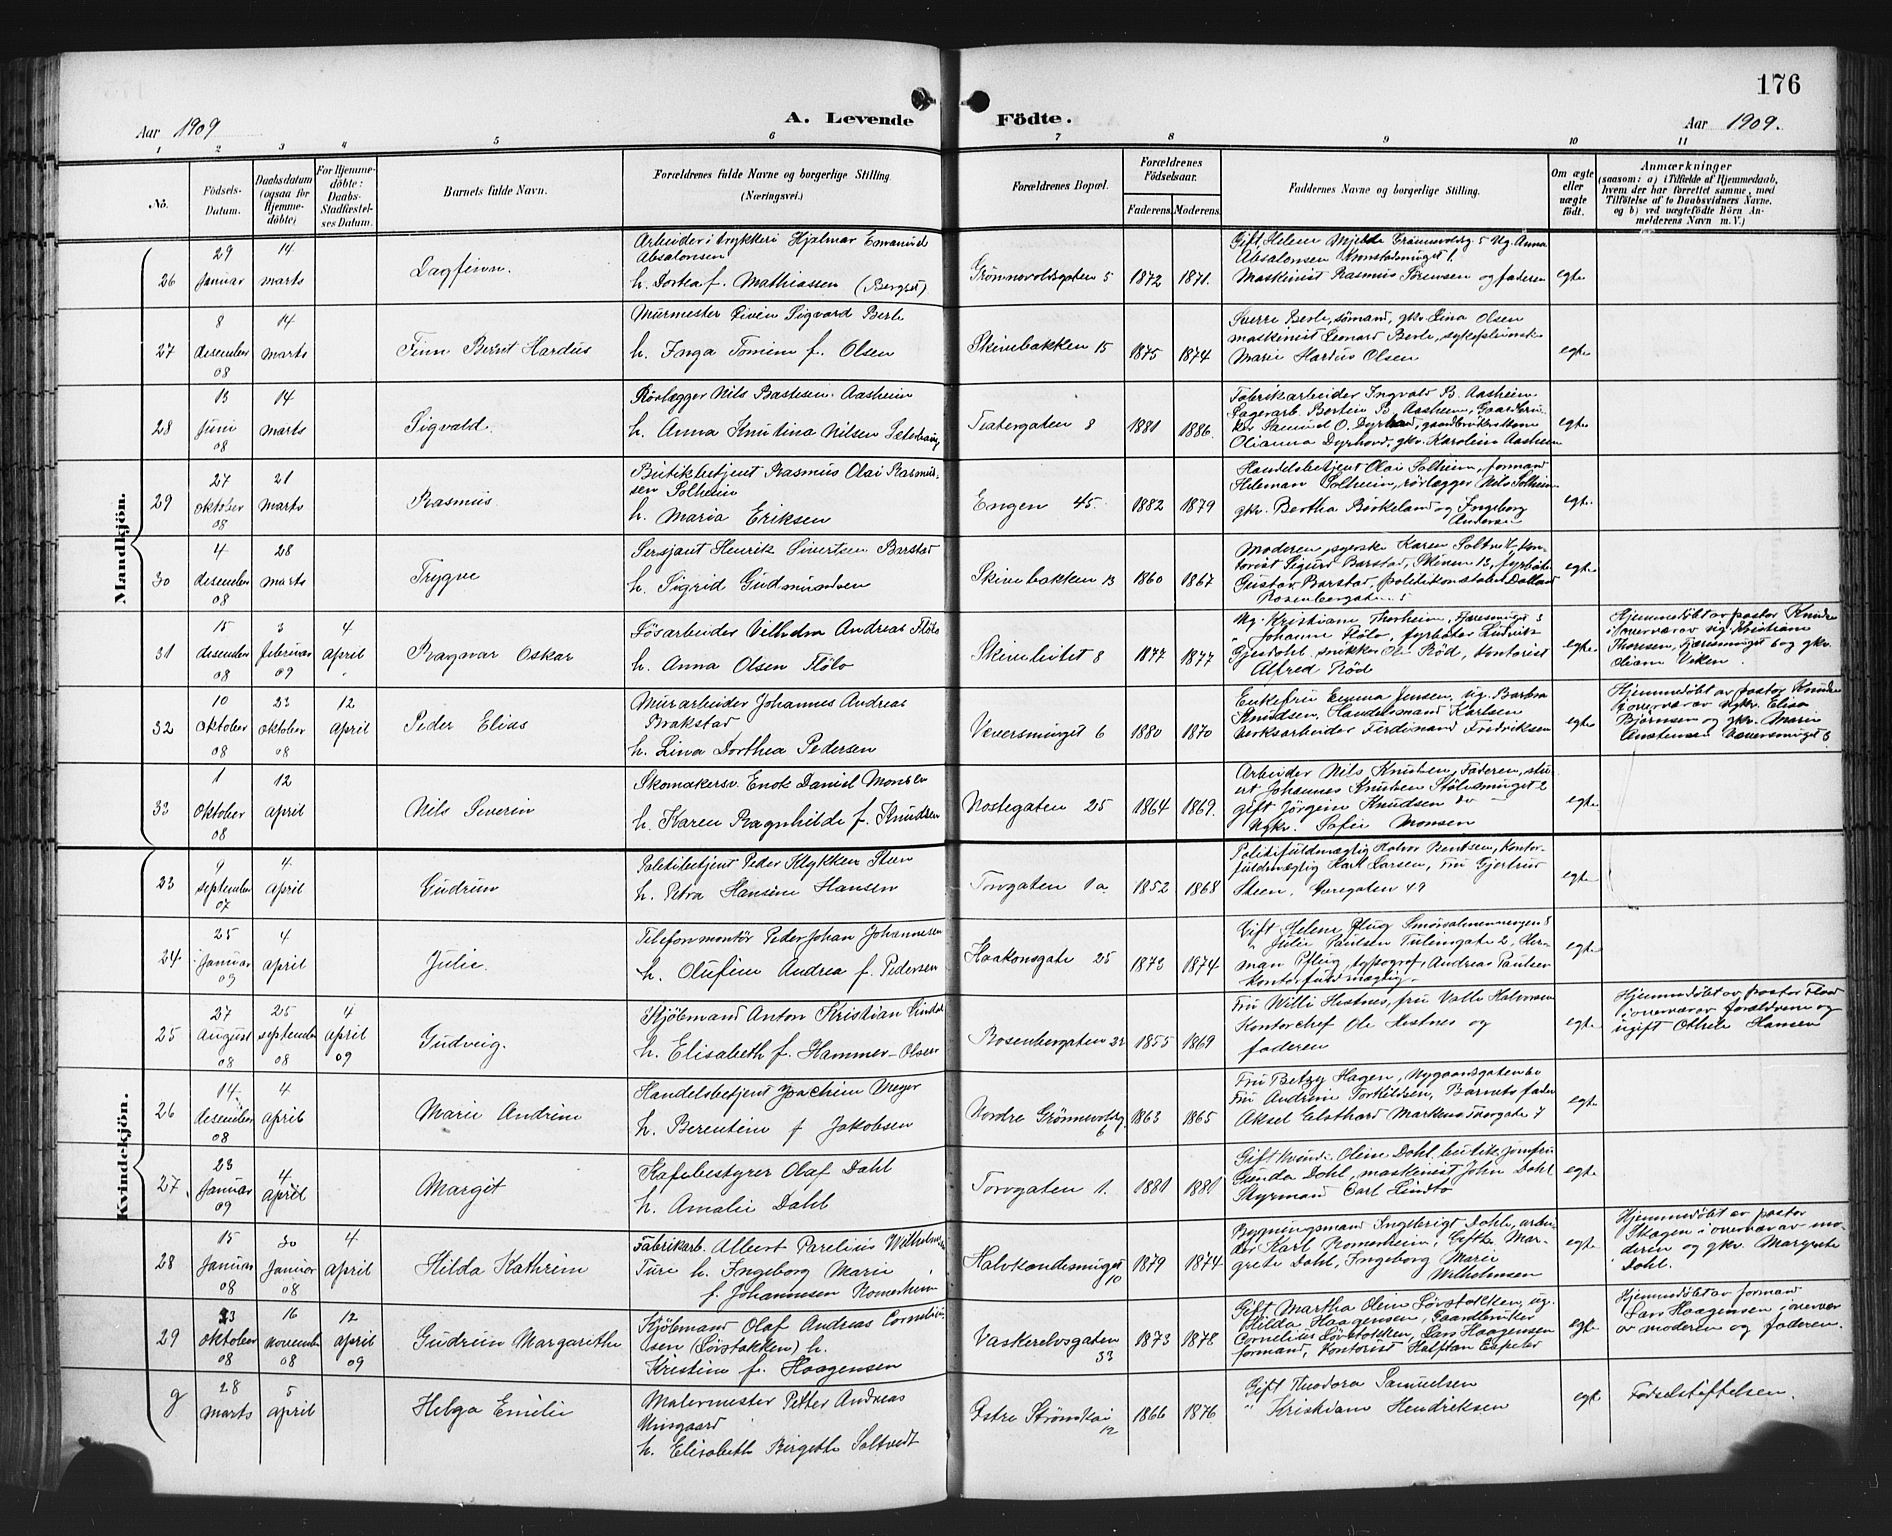 176
Aar 1909
A. Levende Födte.
Aar 1909.
1 2 3 4 5 6 7 8 9 10 11
No.
Födsels-Datum.
Daabsdatum (ogsaa for Hjemmedöbte)
For Hjemmedöbte: Daabs-Stadfæstelses Datum.
Barnets fulde Navn.
Forældrenes fulde Navne og borgerlige Stilling.
(Næringsvei.)
Forældrenes Bopæl.
Forældrenes Födselsaar.
Faderens. Moderens.
Faddernes Navne og borgerlige Stilling.
Om ægte eller uægte födt.
Anmærkninger
(saasom: a) i Tilfælde af Hjemmedaab,
hvem der har forrettet samme, med
Tilföielse af to Daabsvidners Navne.
og b) ved uægtefödte Börn An-
melderens Navn m. V.)
Mandkjön.
26
29 Januar
14 marts
Dagfinn.
Arbeider i trykkeri Hjalmar Emanuel
Absalonsen
h. Dortea f. Mathiassen (Berget)
Grönnevoldsgaten 5
1872 1871.
Gift Helene Mjelde Grönnevoldsg 5 Ug. Anna
Absalonsen
Maskinist Rasmus Sörensen og faderen
egte
27
8 desember 08
14 marts
Finn Bernt Hardus
Murmester Eivin Sigvard Berle
h. Inga Tomine f. Olsen
Skivebakken 15
1875 1874
Sverre Berle, sömand, gkv. Lina Olsen
maskinist Leonard Berle, sykepleierske
Marie Hardus Olsen
egte
28
13 Juni 08
14 marts
Sigvald.
Rörlægger Nils Bastesen Aasheim
h. Anna Knutina Nilsen
Teatergaten 8
1881 1886.
Fabrikarbeider Ingvald B. Aasheim
Lagerarb. Bertin B. Aasheim,
Olianna Dyrhovd, gkv. Karoline Aasheim
egte
29
27 oktober 08
21 marts
Rasmus
Butikbetjent Rasmus Olai Rasmus-
sen Solheim
h. Maria Eriksen
Engen 45.
1882 1879
Handelsbetjent Olai Solheim, formand
Hileman Solheim, rörlægger Nils Solheim
gkv. Bertha Birkeland og Ingeborg
Andersen
egte
30
4 desember 08
28 marts
Trygve
Sersjant Henrik Sivertsen Barstad
h. Sigrid Gudmundsen
Skivebakken 13
1860 1867
Moderen, syerske Karen Soltvit, kon-
torist Sigurd Barstad, Skiven 13, fyrböter
Gustav Barstad, politikonstabel Dalland
Rosenbergaten 5
egte
31
15 desember 08
3 februar 09
4 April
Ragnvar Oskar
Lösarbeider Vilhelm Andreas Flölo
h. Anna Olsen Flölo
1877 1877
Ug. Kristiane Thorheim,
" Johanne Flölo, fyrböter Ludvik
Gjesdahl, snikker Ole Röd, kontorist
Alfred Röd
egte
Hjemmedöbt av pastor Knudsen
i overvær av ug. Kristiane
Thorsen,
Oliane Viken.
32
10 Oktober 08
23 oktober 08
12 April
Peder Elias
Murarbeider Johannes Andreas
Brakstad
h. Lina Dorthea Pedersen
Veversmuget 6
1880 1870
Enkefru Emma Jensen, ug. Barbra
Knudsen, Handelsmand Karlsen
verksarbeider Ferdinand Fredriksen
egte
Hjemmedöbt av pastor Knudsen
i overvær av ugkv. Elisa
Björnsen og gkv. Marie
Anstensen Veversmuget 6
33
1 Oktober 08
12 april
Nils Severin
Skomakersv. Enok Daniel Monsen
h. Karen Ragnhilde f. Knudsen
Nostegaten 25
1864 1869.
Arbeider Nils Knutsen, Faderen, stu-
ert Johannes Knutsen Stölesmuget 2
gift Jörgine Knudsen do
Ugkv. Sofie Monsen
egte
Kvindekjön.
23
9 september 07
4. april
Gudrun
Politibetjent Peder Klykken Steen
h. Petra Hansine Hansen
Torvgaten 1a
1852 1868
Politifuldmægtig Halvor Bentsen, kontor-
fuldmægtig Karl Larsen, fru Gjertrud
Steen, Övregaten 49
egte
24.
25 Januar 09
4 april
Julie.
Telefonmontör Peder Johan Johannesen
h. Olufine Andrea f. Pedersen
Haakonsgate 25
1873 1874
Gift Helene Pflug Smörsalmenningen 8
" Julie Paulsen Tulinsgate 2, Her-
man Pflug, typograf, Andreas Paulsen
kontorfuldmægtig.
egte
25
27 August 08
25 september 08
4 april 09
Gudveig.
Kjöbmand Anton Kristian
h. Elisabeth f. Hammer-Olsen
Rosenbergaten 32
1855 1869
Fru Willi Hestnes, fru Valle Halvorsen
Kontorchef Ole Hestnes og
faderen
egte
Hjemmedöbt av pastor Flood
i overvær av forældrene og
ugift Othele Hansen
26
14. desember 08
4 april
Marie Andrine
Handelsbetjent Joachim Meyer
h. Berentine f. Jakobsen
Nordre Grönnevoldsg 6
1863 1865
Fru Betzy Hagen, Nygaardsgaten 60
Fru Andrine Torkildsen, Barnets fader
Aksel Markus Torvgate 7
egte
27
23 Januar 09
4 april
Margit
Kafebestyrer Olaf Dahl
h. Amalie Dahl
Torvgaten 1.
1881 1881
Gift kvinde Oline Dahl, butikjomfru
Gunda Dahl, maskinist John Dahl
Styrmand Carl Lindto
egte
28
15 Januar 08
30 Januar 08
4 april
Hilda Kathrine
Fabrikarb. Albert Parelius Wilhelmsen
Ture h. Ingeborg Marie
f. Johannesen Romerheim
Halvkandesmuget 10
1879 1874
Bygningsmand Ingebrigt Dahl, arbei-
der Karl Romerheim, Gifte Mar-
grete Dahl, Ingeborg Marie
Wilhelmsen
egte
Hjemmedöbt av pastor
Skagen i overvær av mo-
deren og gkv. Margrete
Dahl.
29
23 oktober 08
16 november 08
12 april 09
Gudrun Margarethe
Kjöbmand Olaf Andreas Corneliu-
sen (Lövstakken) h.
Kristine f. Haagensen
Vaskerelvsgaten 33
1873 1878
Gift Martha Oline Lövstakken, ug.
Hilda Haagensen, Gaardbruker
Cornelius Lövstakken, Lars Haagensen
formand, kontorist Halfdan Espeter
egte
Hjemmedöbt av formand
Lars Haagensen i overvær
av moderen og faderen.
g
28 marts
5 april
Helga Emilie
Malermester Petter Andreas
Misgaard
h. Elisabeth Birgethe Soltvedt
Östre Strömkai 12
1866 1876
Gift Theodora Samuelsen
" Kriskdane Hendriksen
egte
Födselstiftelsen.